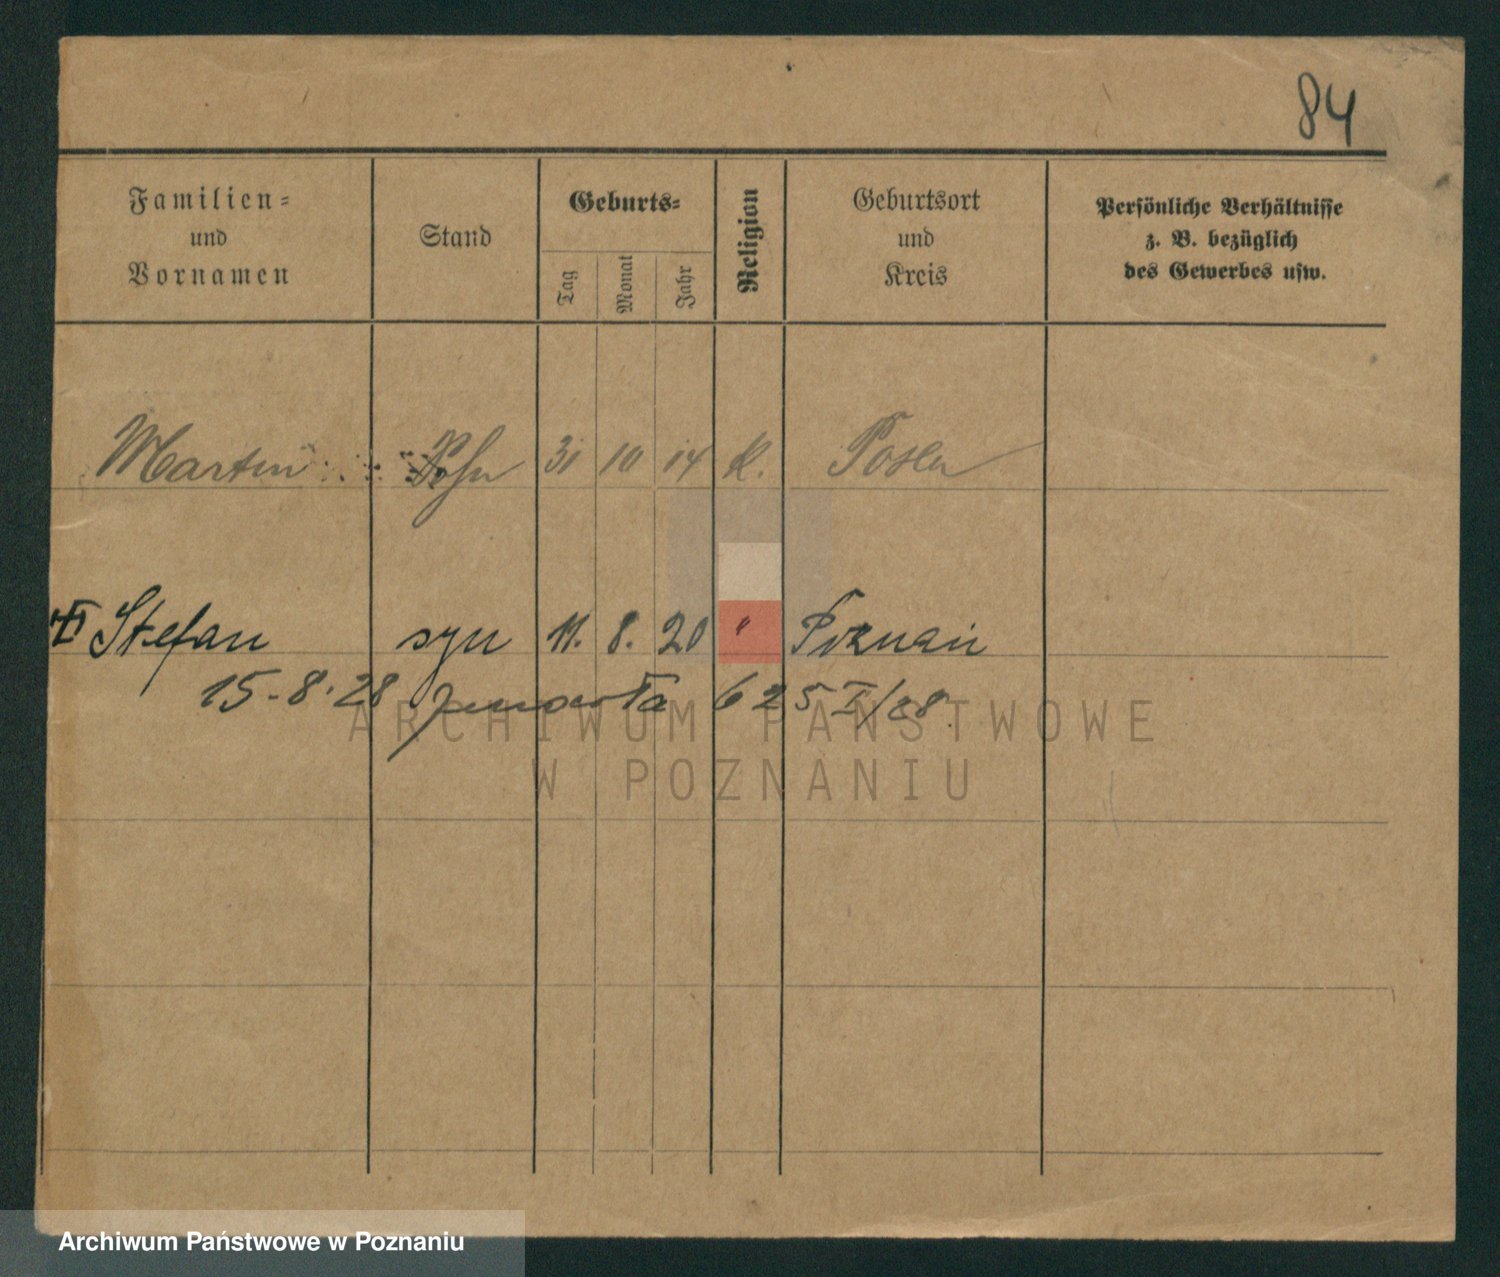 84
Familien=
und
Vornamen
Stand
Geburts=
Tag
Monat
Jahr
Religion
Geburtsort
und
Kreis
Persönliche Verhältnisse
z. B. bezüglich
des Gewerbes usw.
Martin Sohn 31 10 14 K. Posen
Stefan syn 11. 8. 20 " Poznań
15-8-28 625 I/28
ARCHIWUM PAŃSTWOWE
W POZNANIU
Archiwum Państwowe w Poznaniu